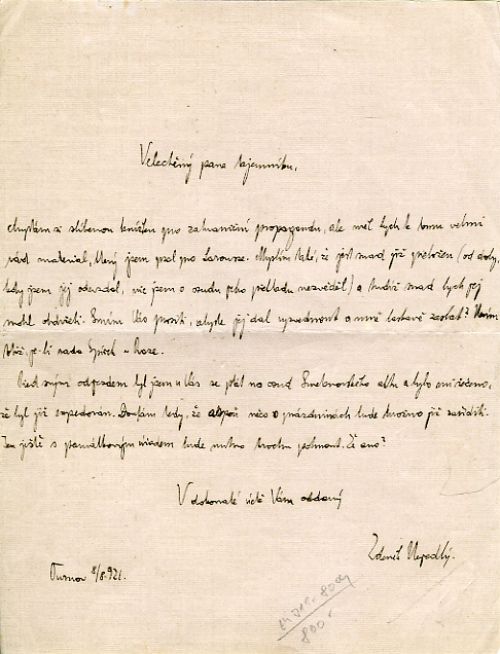 Velectěný pane tajemníku,
chystám si slíbenou knížku pro zahraniční propagandu, ale měl bych k tomu velmi
rád materiál, který jsem psal pro Larousse. Myslím také, že jest snad již přeložen (od doby,
kdy jsem jej odevzdal, nic jsem o osudu jeho překladu nezvěděl) a tudíž snad bych jej
mohl obdržeti. Smím Vás prositi, abyste jej dal vyzvednout a mně laskavě zaslat?
též, je-li
Před svým odjezdem byl jsem u Vás se ptát na osud Smetanovského aktu a bylo mi řečeno,
že byl již expedován. Doufám tedy, že aspoň něco o prázdninách bude možno již zaříditi.
Jen ještě s památkovým úřadem bude nutno trochu pohnout. Či ano?
V dokonalé úctě Vám oddaný
Zdeněk Nejedlý.
8/8. 921.
800